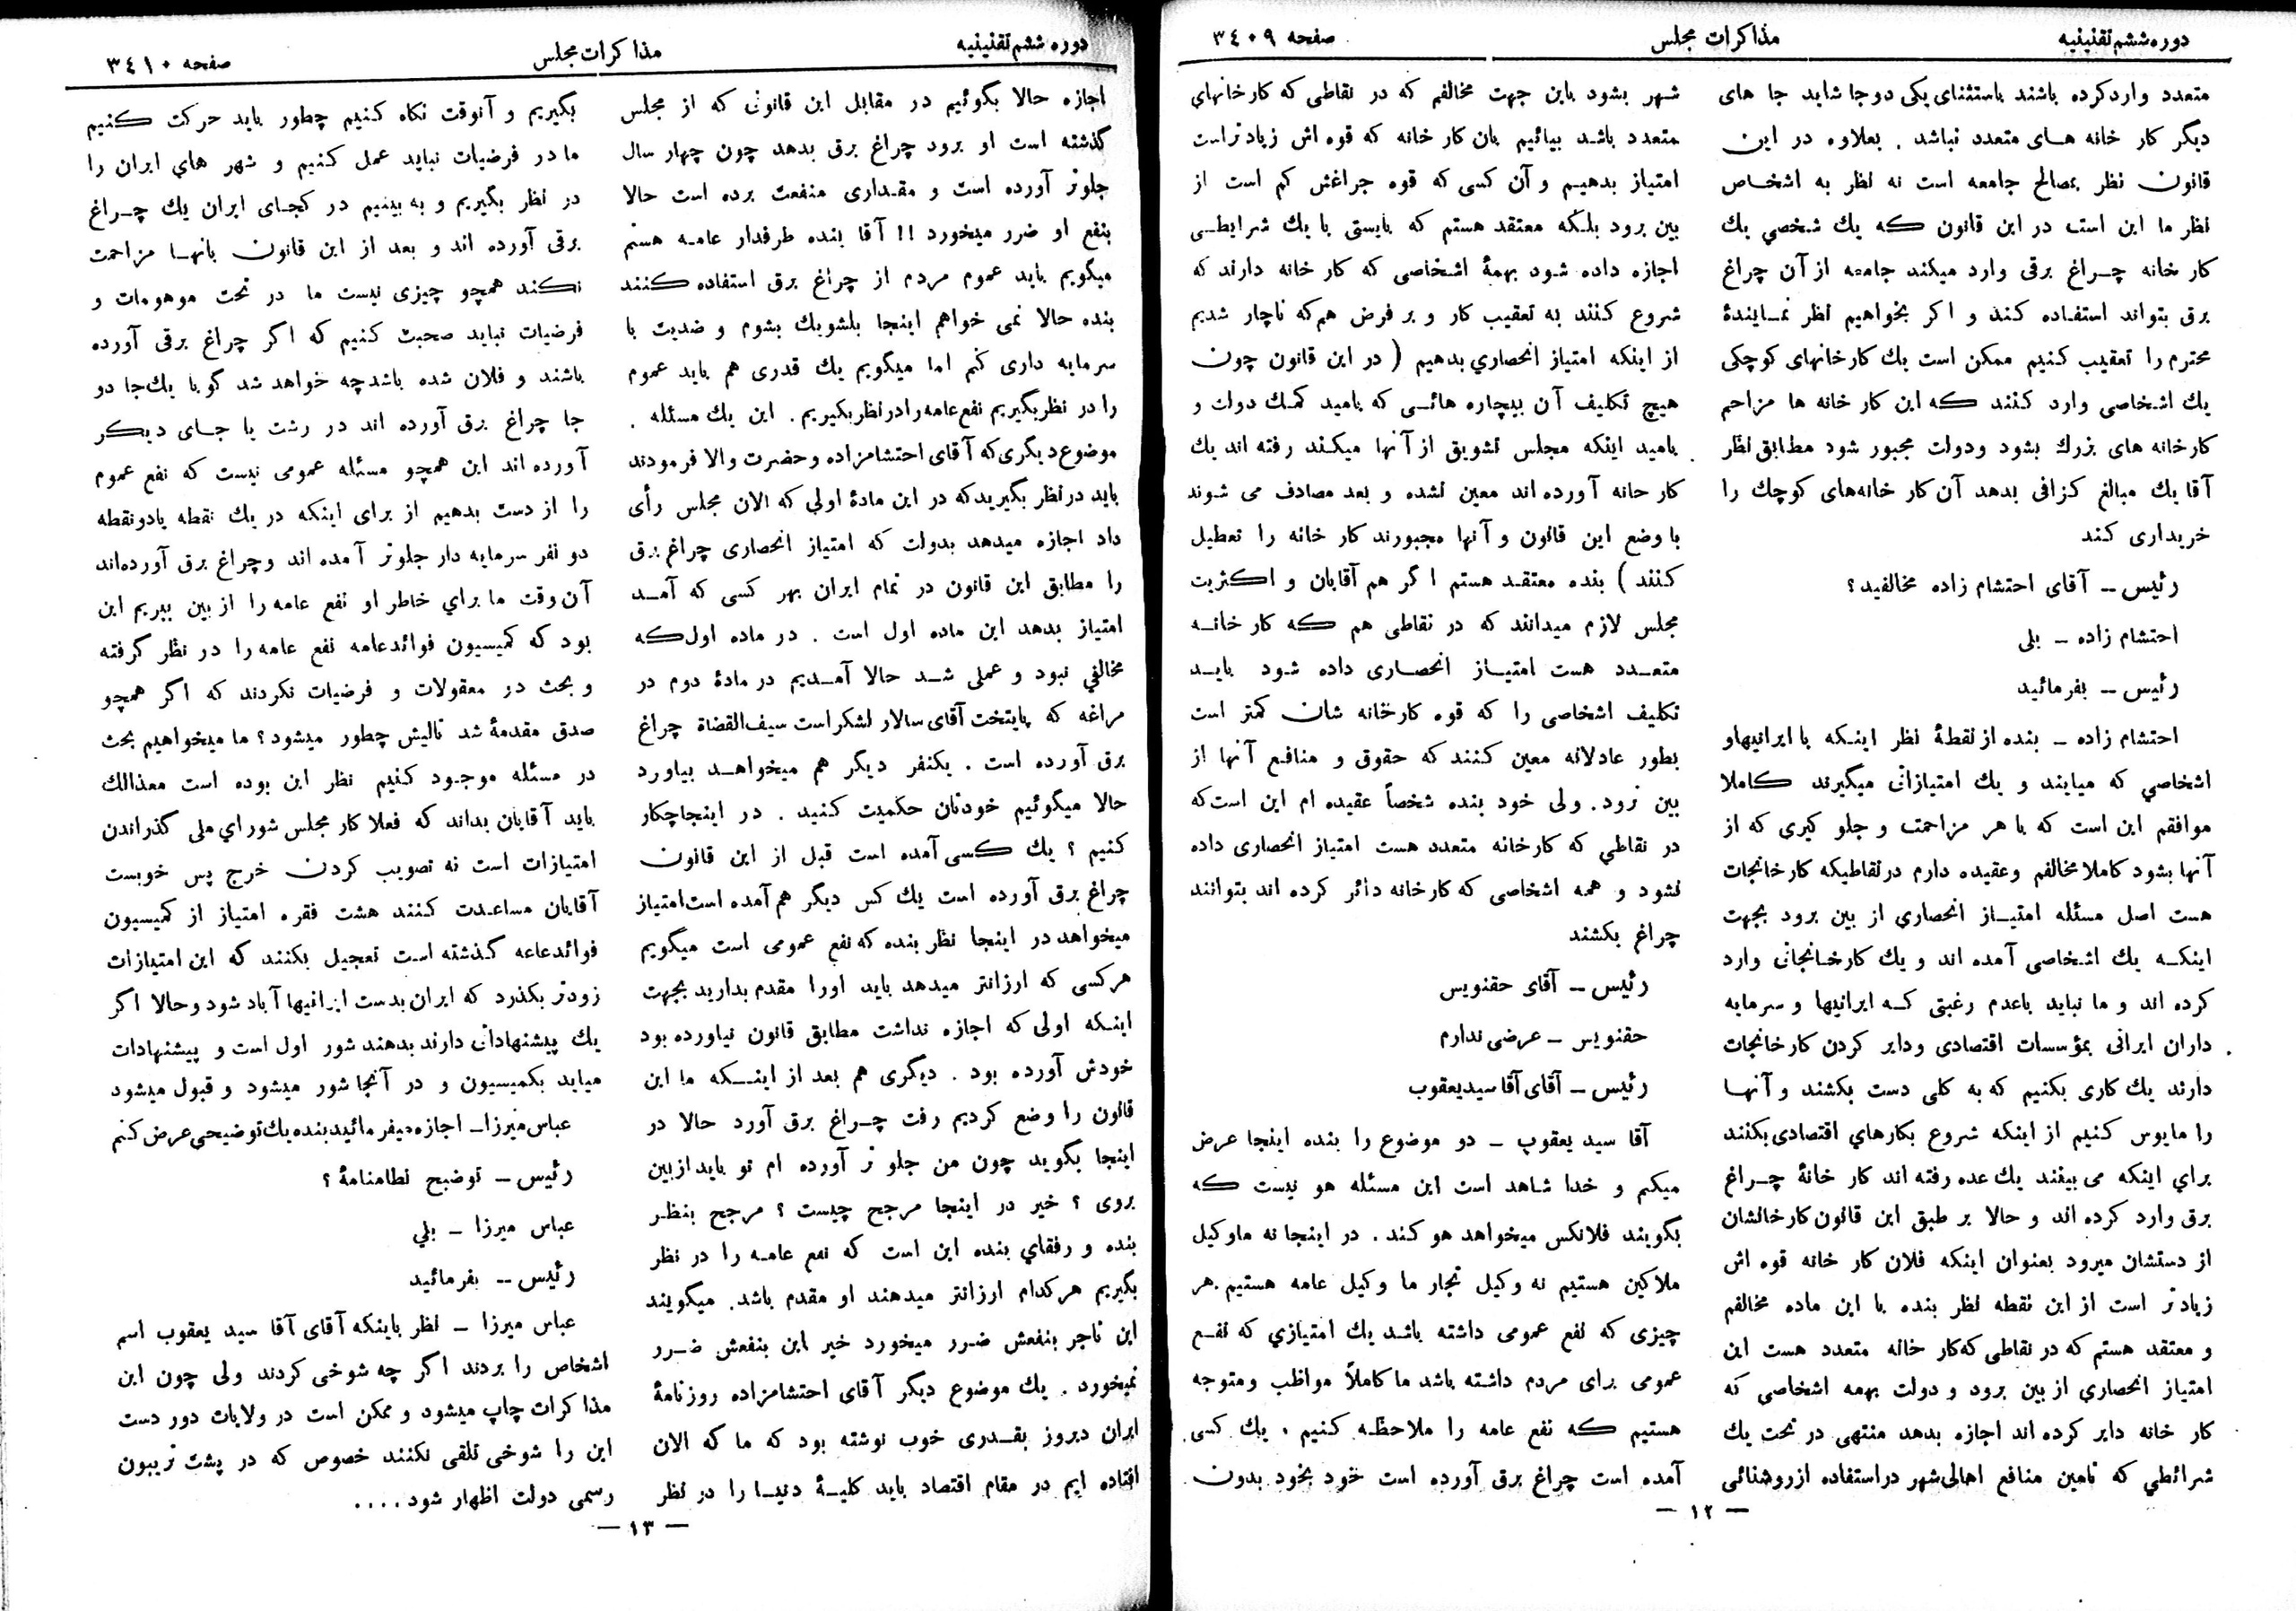 دوره ششم تقنینیه
مذاکرات مجلس
صفحه ۳٤۰۹
متعدد وارد کرده باشند باستثنای یکی دو جا شاید جا های
دیگر کار خانه هـای متعدد نباشد . بعلاوه در این
قانون نظر بمصالح جامعه است نه نظر به اشخـاص
نظر ما این است در این قانون که یك شخصي یك
کار خانه چـراغ برقی وارد میکند جامعه از آن چراغ
برق بتواند استفـاده کند و اکر بخواهیم نظر نمـایندهٔ
محترم را تعقیب کنیم ممکن است یك کارخانهای کوچکی
یك اشخاصی وارد کـنند که این کار خانه ها مزاحم
کارخانه های بزرك بشود ودولت مجبور شود مطابق نظر
آقا یك مبالغ کزافی بدهد آن کار خانه‌های کوچك را
خریداری کند
رئیس ــ آقای احتشام زاده مخالفید ؟
احتشام زاده ــ بلی
رئیس ــ بفرمائید
احتشام زاده ــ بنده از نقطهٔ نظر اینـکه با ایرانیهاو
اشخاصي که میایند و یك امتیازاتی میگیرند کاملا
موافقم این است که با هر مزاحمت و جلو کیری که از
آنها بشود کاملا مخالفم وعقیده دارم در نقاطیکه کارخانجات
هست اصل مسئله امتیـاز انحصاري از بین برود بجهت
اینکـه یك اشخاصی آمده اند و یك کارخـانجاتی وارد
کرده اند و ما نباید باعدم رغبتی کـه ایرانیها و سرمایه
داران ایرانی بمؤسسات اقتصادی ودایر کردن کارخانجات
دارند یك کاری بکنیم که به کلی دست بکشند و آنهـا
را مایوس کنیم از اینکه شروع بکارهاي اقتصادی بکنند
براي اینکه می بینند یك عده رفته اند کار خانهٔ چـراغ
برق وارد کرده اند و حالا بر طبق این قانون کارخانشان
از دستشان میرود بعنوان اینکه فلان کار خانه قوه اش
زیاد تر است از این نقطه نظر بنده با این ماده مخالفم
و معتقد هستم که در نقاطی که کار خانه متعدد هست این
امتیاز انحصاري از بین برود و دولت بهمه اشخاصي که
کار خانه دایر کرده اند اجازه بدهد منتهی در تحت یك
شرائطي که تامین منافع اهالی شهر دراستفاده ازروشنائی
شهر بشود باین جهت مخالفم که در نقاطی که کارخانهاي
متعدد باشـد بیائیم بان کار خانه که قوه اش زیاد تراست
امتیاز بدهیـم و آن کسی که قوه چراغش کم است از
بین برود بلـکه معتقد هستم که بایستی با یك شرایطـی
اجازه داده شود بهمهٔ اشخاصی که کار خانه دارند که
شروع کنند به تعقیب کار و بر فرض هم که ناچار شدیم
از اینکه امتیاز انحصاري بدهیم ( در این قانون چون
هیچ تکلیف آن بیچاره هائـی که بامید کمـك دولت و
بامید اینکه مجلس تشویق از آنها میکـند رفته اند یك
کار خانه آورده اند معین نشده و بعد مصادف می شوند
با وضع این قانون و آنها مجبورند کار خانه را تعطیل
کـنند ) بنده معتقـد هستم ا گر هم آقایان و اکثریت
مجلس لازم میدانند که در نقاطی هم که کار خانـه
متعـدد هست امتیـاز انحصـاری داده شود بایـد
تکلیف اشخاصی را که قوه کارخانه شان کمتر است
بطور عادلانه معین کـنند که حقوق و منافـع آنها از
بین نرود. ولی خود بنده شخصاً عقیده ام این است که
در نقاطي که کارخانه متعدد هست امتیاز انحصاری داده
نشود و همه اشخاصی که کارخانه دائر کرده اند بتوانند
چراغ بکشند
رئیس ــ آقای حقنویس
حقنویس ــ عرضی ندارم
رئیس ــ آقای آقا سید یعقوب
آقا سید یعقوب ــ دو موضوع را بنده اینجا عرض
میکنم و خدا شاهد است این مسئله هو نیست که
بگویند فلانکس میخواهد هو کند . در اینجا نه ماوکیل
ملاکین هستیم نه وکیل تجار ما وکیل عامه هستیم.هر
چیزی که نفع عمومی داشته باشـد یك امتیازي که نفـع
عمومی برای مردم داشته باشد ما کاملاً مواظب ومتوجه
هستیم که نفع عامه را ملاحظـه کنیم . یك کسی
آمده است چراغ برق آورده است خود بخود بدون
— ۱۲ —
دوره ششم تقنینیه
مذاکرات مجلس
صفحه ۳٤۱۰
اجازه حالا بگوئیم در مقابل این قانونی که از مجلس
گذشته است او برود چراغ برق بدهد چون چهار سال
جلوتر آورده است و مقـداری منفعت برده است حالا
بنفع او ضرر میخورد !! آقا بنده طرفدار عامـه هستم
میگویم باید عموم مردم از چراغ برق استفاده کـنند
بنده حالا نمی خواهم اینجا بلشویك بشوم و ضدیت با
سرمایه داری کنم اما میگویم یك قدری هم باید عموم
را در نظر بگیریم نفع عامه را در نظر بکیریم . این یك مسئله .
موضوع دیگری که آقای احتشامزاده وحضرت والا فرمودند
باید در نظر بگیرید که در این مادهٔ اولي که الان مجلس رأی
داد اجازه میدهد بدولت که امتیاز انحصاری چراغ برق
را مطابق این قانون در تمام ایران بهر کسی که آمـد
امتیاز بدهد این ماده اول است . در ماده اول که
مخالفي نبود و عملی شـد حالا آمـدیم در مادهٔ دوم در
مراغه که پایتخت آقای سالار لشکر است سیف القضاة چراغ
برق آورده است . یکنفر دیگر هم میخواهـد بیاورد
حالا میگوئیم خودتان حکمیت کنـید . در اینجاچکار
کنیم ؟ یك کسی آمده است قبل از این قانون
چراغ برق آورده است یك کس دیگر هم آمده است امتیاز
میخواهد در اینجا نظر بنده که نفع عمومی است میگویم
هرکسی که ارزانتر میدهد باید اورا مقدم بدارید بجهت
اینـکه اولی که اجازه نداشت مطابق قانون نیاورده بود
خودش آورده بود . دیگری هم بعد از اینـکه ما این
قانون را وضع کردیم رفت چـراغ برق آورد حالا در
اینجا بگوید چون من جلو تر آورده ام تو باید از بین
بروی ؟ خیر در اینجا مرجح چیست ؟ مرجح بنظـر
بنده و رفقاي بنده این است که نفع عامـه را در نظر
بگیریم هر کدام ارزانتر میدهند او مقدم باشد. میگویند
این تاجر بنفعش ضـرر میخورد خیر این بنفعش ضـرر
نمیخورد . یك موضوع دیگر آقای احتشامزاده روزنامهٔ
ایران دیروز بقـدری خوب نوشته بود که ما که الان
افتاده ایم در مقام اقتصاد باید کلیـهٔ دنیـا را در نظر
بگیریم و آنوقت نکاه کـنیم چطور باید حرکت کـنیم
ما در فرضیات نباید عمل کـنیم و شهر هاي ایران را
در نظر بگیریم و به بینیم در کجـای ایران یك چـراغ
برقی آورده اند و بعد از این قانون بانهـا مزاحمت
نکـند همچو چیزی نیست ما در تحت موهومات و
فرضیات نباید صحبت کـنیم که اکر چراغ برقی آورده
باشند و فلان شده باشد چه خواهد شد گویا یك جا دو
جا چراغ برق آورده اند در رشت یا جـای دیـکر
آورده اند این همچو مسئله عمومی نیست که نفع عموم
را از دست بدهیم از برای اینکه در یك نقطه یا دو نقطه
دو نفر سرمایه دار جلوتر آمده اند وچراغ برق آورده‌اند
آن وقت ما براي خاطر او نفع عامه را از بین ببریم این
بود که کمیسیون فوائد عامه نفع عامه را در نظر گرفته
و بحث در معقولات و فرضیات نکردند که اگر همچو
صدق مقدمهٔ شد تالیش چطور میشود ؟ ما میخواهیم بحث
در مسئله موجـود کـنیم نظر این بوده است معذالك
باید آقایان بداند که فعلا کار مجلس شوراي ملی گذراندن
امتیازات است نه تصویب کردن خرج پس خوبست
آقایان مساعـدت کـنند هشت فقره امتیاز از کمیسیون
فوائد عاعه گـذشته است تعجیل بکنند که این امتیازات
زودتر بکذرد که ایران بدست ایرانیها آباد شود وحالا اکر
یك پیشنهاداتی دارند بدهند شور اول است و پیشنهادات
میاید بکمیسیون و در آنجا شور میشود و قبول میشود
عباس میرزا ــ اجازه میفرمائید بنده یك توضیحي عرض کنم
رئیس ــ توضیح نظامنامهٔ ؟
عباس میرزا ــ بلي
رئیس ــ بفرمائید
عباس میرزا ــ نظر باینکه آقای آقا سید یعقوب اسم
اشخاص را بردند اگر چه شوخی کردند ولی چون این
مذاکرات چاپ میشود و ممکن است در ولایات دور دست
این را شوخی تلقی نکنند خصوص که در پشت تریبون
رسمی دولت اظهار شود ....
— ۱۳ —